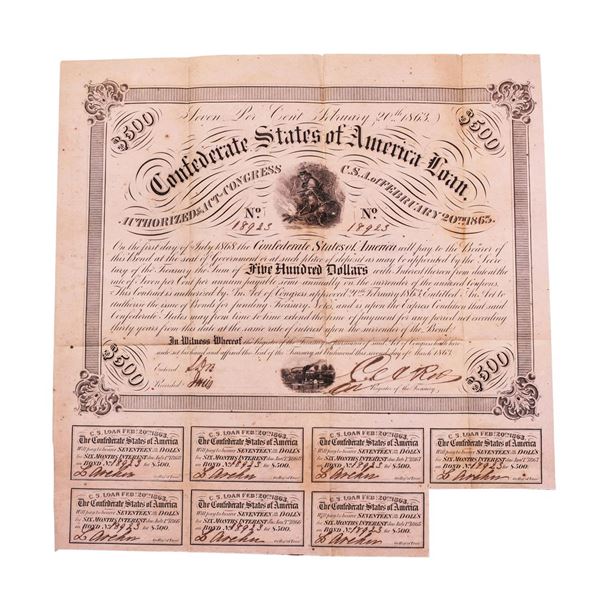 Seven Per Cent February 20th 1863.
$500 $500
Confederate States of America Loan.
AUTHORIZED by ACT of CONGRESS C.S.A. of FEBRUARY 20TH 1863.
No. No.
18923 18923
On the first day of July 1868 the Confederate States of America will pay to the Bearer of
this Bond at the seat of Government or at such place of deposit as may be appointed by the Secre
tary of the Treasury the Sum of Five Hundred Dollars with Interest thereon from date at the
rate of Seven per Cent per annum payable semi-annually on the surrender of the annexed Coupons.
This Contract is authorized by An Act of Congress approved 20th February 1863 Entitled An Act to
authorize the issue of Bonds for funding Treasury Notes, and is upon the Express Condition that said
Confederate States may from time to time extend the time of payment for any period not exceeding
thirty years from this date at the same rate of interest upon the surrender of the Bond.
In Witness Whereof the Register of the Treasury in pursuance of said Act of Congress hath here
unto set his hand and affixed the Seal of the Treasury at Richmond this second day of March 1863.
$500 $500
Entered
Recorded
Register of the Treasury.
C.S. LOAN FEBY. 20TH 1863.
The Confederate States of America
Will pay to bearer SEVENTEEN 50/100 DOLLS
for SIX MONTHS INTEREST due July 1st 1868
on BOND No. 18923 for $500.
C.S. LOAN FEBY. 20TH 1863.
The Confederate States of America
Will pay to bearer SEVENTEEN 50/100 DOLLS
for SIX MONTHS INTEREST
on BOND No. 18923 for $500.
C.S. LOAN FEBY. 20TH 1863.
The Confederate States of America
Will pay to bearer SEVENTEEN 50/100 DOLLS
for SIX MONTHS INTEREST
on BOND No. 18923 for $500.
C.S. LOAN FEBY. 20TH 1863.
The Confederate States of America
Will pay to bearer SEVENTEEN 50/100 DOLLS
for SIX MONTHS INTEREST
on BOND No. 18923 for $500.
C.S. LOAN FEBY. 20TH 1863.
The Confederate States of America
Will pay to bearer SEVENTEEN 50/100 DOLLS
for SIX MONTHS INTEREST
on BOND No. 18923 for $500.
C.S. LOAN FEBY. 20TH 1863.
The Confederate States of America
Will pay to bearer SEVENTEEN 50/100 DOLLS
for SIX MONTHS INTEREST
on BOND No. 18923 for $500.
C.S. LOAN FEBY. 20TH 1863.
The Confederate States of America
Will pay to bearer SEVENTEEN 50/100 DOLLS
for SIX MONTHS INTEREST
on BOND No. 18923 for $500.